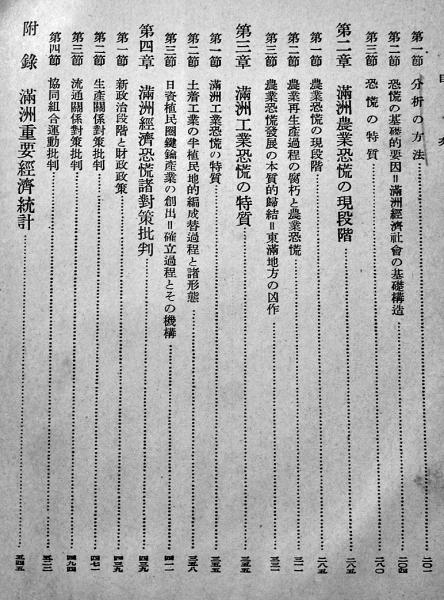 第一節 分析の方法…………二〇一
第二節 恐慌の基礎的要因=滿洲經濟社會の基礎構造…………二〇四
第三節 恐慌の特質…………二八〇
第二章 滿洲農業恐慌の現段階…………二八五
第一節 農業恐慌の現段階…………二八五
第二節 農業再生產過程の腐朽と農業恐慌…………三一一
第三節 農業恐慌發展の本質的歸結=東滿地方の凶作…………三三一
第三章 滿洲工業恐慌の特質…………三五五
第一節 滿洲工業恐慌の特質…………三五五
第二節 土着工業の半植民地的編成替過程と諸形態…………三五八
第三節 日資植民圈鍵鑰產業の創出=確立過程とその機構…………四一一
第四章 滿洲經濟恐慌諸對策批判…………四三九
第一節 新政治段階と財政政策…………四三九
第二節 生產關係對策批判…………四七一
第三節 流通關係對策批判…………四九四
第四節 協同組合運動批判…………五一二
附錄 滿洲重要經濟統計…………五四五